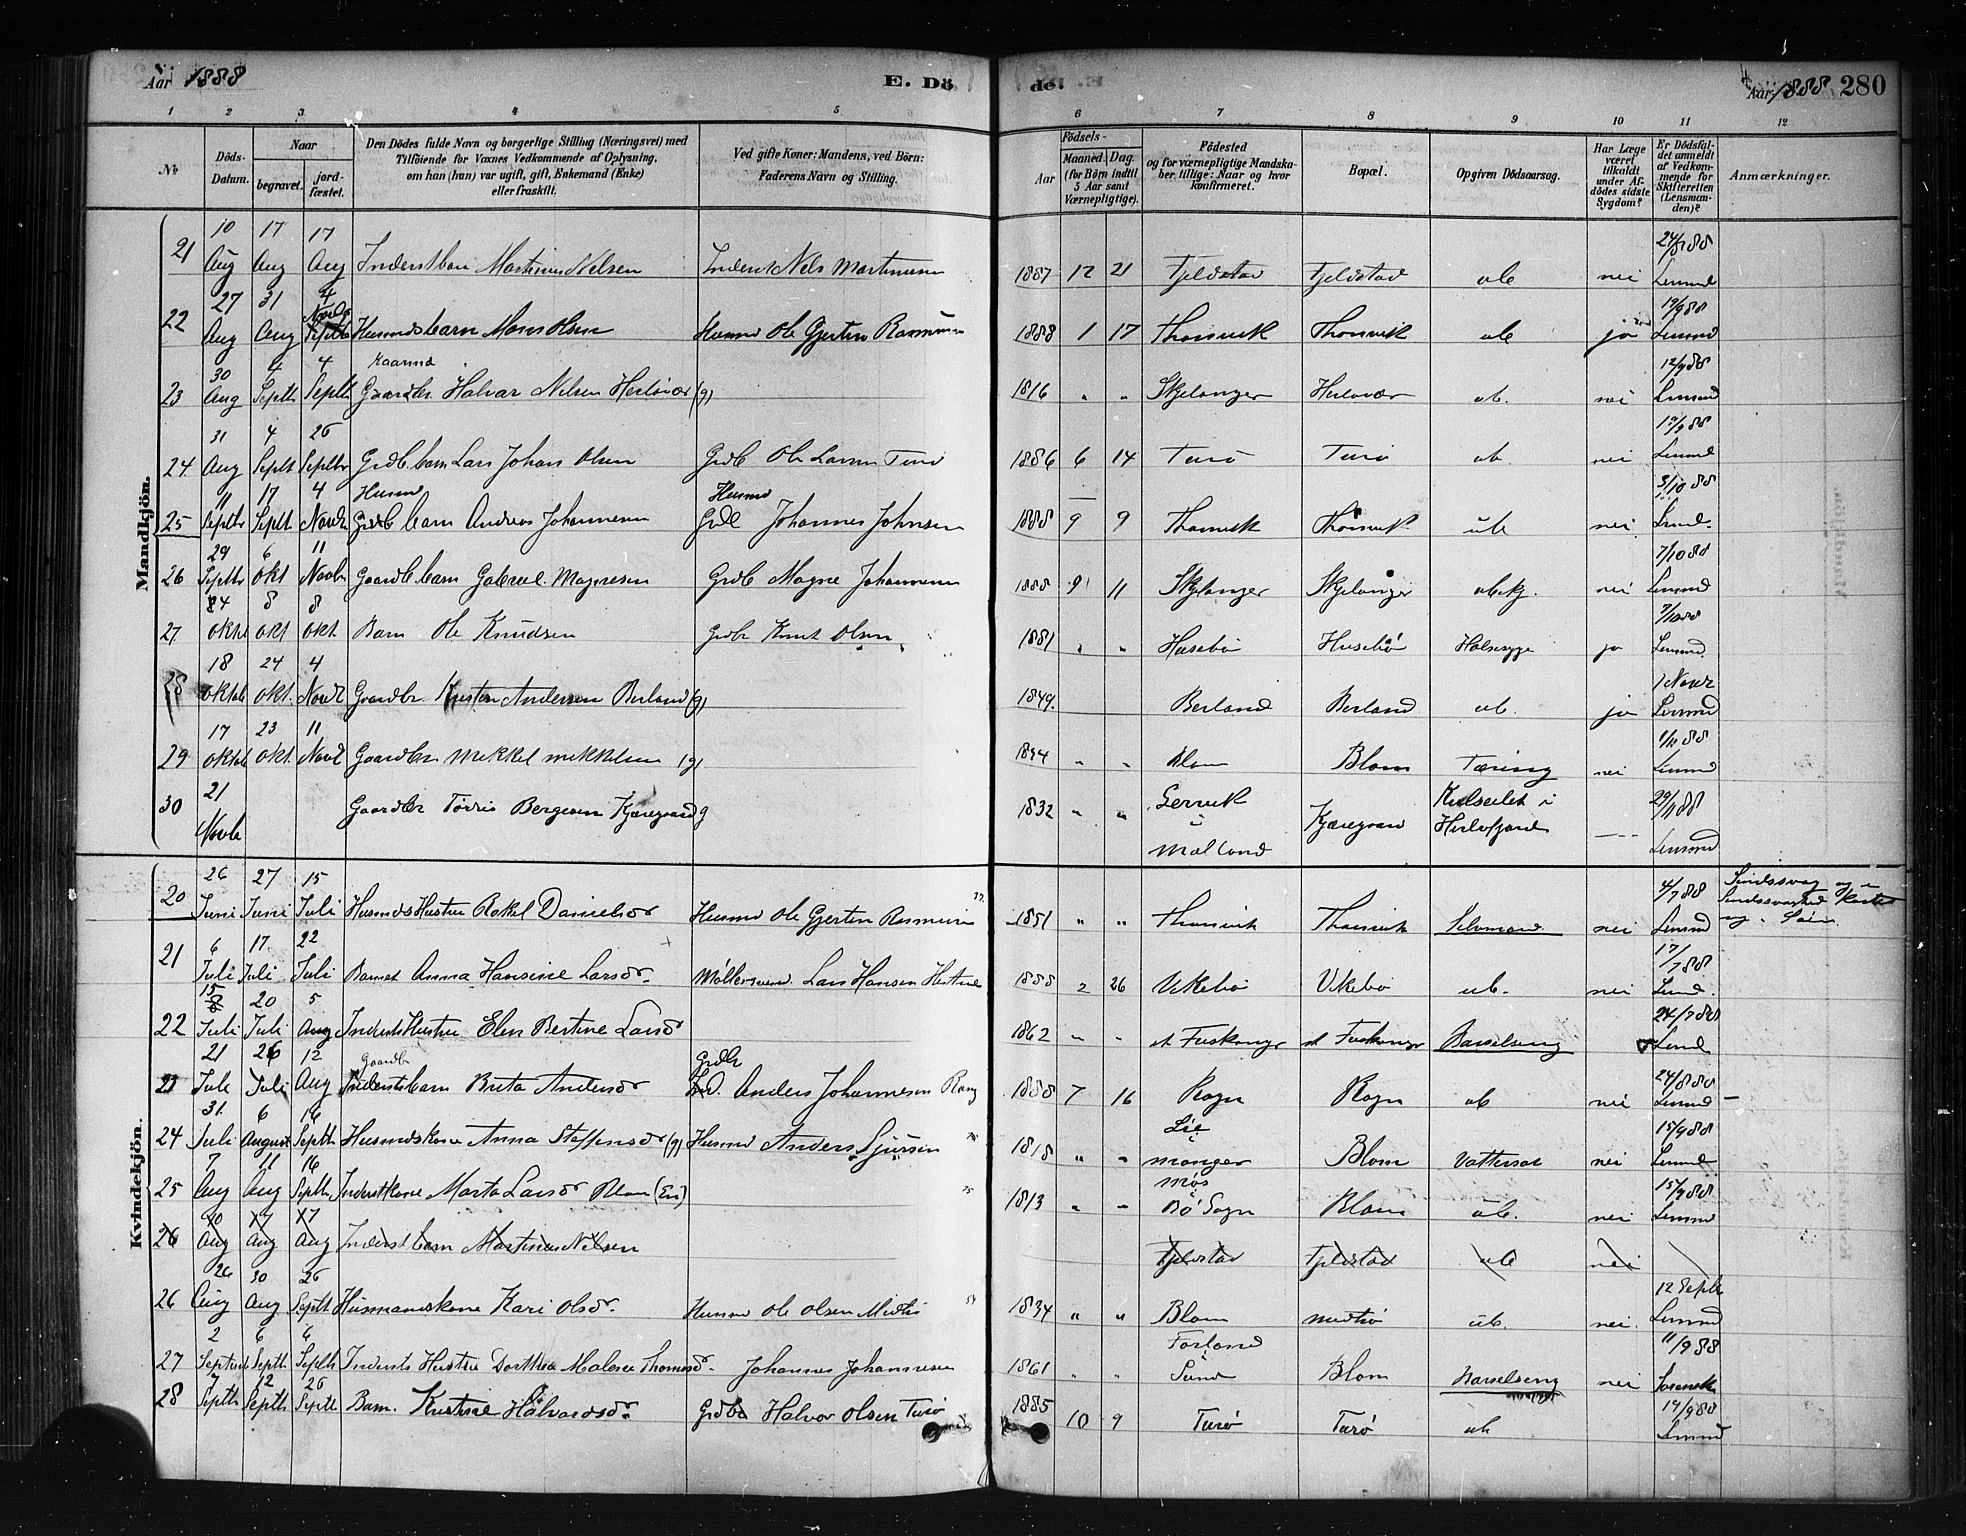 Aar 1888 E. Dö
de. Aar 1888 280
1 2 3 4 5 6 7 8 9 10 11 12
No. Döds-Datum. Naar begravet. jord-fæstet. Den Dödes fulde Navn og borgerlige Stilling (Næringsvei) med Tilföiende for Voxnes Vedkommende af Oplysning, om han (han) var ugift, gift, Enkemand (Enke) eller fraskilt. Ved gifte Koner: Mandens, ved Börn: Faderens Navn og Stilling.
Aar Födsels- Maaned. Dag. (for Börn indtil 5 Aar samt Værnepligtige). Födested og for værnepligtige Mandskaber tillige: Naar og hvor konfirmeret. Bopæl. Opgiven Dödsaarsag. Har Læge været tilkaldt under Afdödes sidste Sygdom? Er Dödsfaldet anmeldt af Vedkommende for Skifteretten (Lensmanden)? Anmærkninger.
Mandkjön.
21 10 Aug 17 Aug 17 Aug Inderstbarn Martinus Nelsen Inderst Nels Martinusen 1887 12 21 Tjeldstad Tjeldstad ub nei 24/8 88 Lensmd
22 27 Aug 31 Aug 4 Novb Septb Husmdsbarn Mons Olsen Husmd Ole Gjertin Rasmusen 1888 1 17 Thorsvik Thorsvik ub jo 12/9 88 Lensmd
23 30 Aug 4 Septb 4 Septb Kaarmd Gaardbr Halvar Nelsen Herløvær (g) 1816 " " Skjelanger Herløvær ub. nei 12/9 88 Lensmd
24. 31 Aug 4 Septb 26 Septbr Grdb. barn Lars Johan Olsen Grdb Ole Larsen Turø 1886 6 14 Turø Turø ub. nei 12/9 88 Lensmd
25 11 Septbr 17 Septb 4 Novbr Husmd Grdb barn Andreas Johannesen Husmd Grdb Johannes Johnsen 1888 9 9 Thorsvik Thorsvik ub nei 3/10 88 Lensmd.
26 29 Septbr 6 Okt 11 Novbr Gaardb barn Gabriel Magnesen Grdb Magne Johannesen 1888 9 11 Skjelanger Skjelanger ubekj. nei 7/10 88 Lensmd
27. 4 Oktb 8 Okt 8 Okt Barn Ole Knudsen Grdb Knut Olsen 1881 " " Husebø Husebø Halssyge jo 7/10 88 Lensmd.
28 18 Oktob 24 Okt. 4 Novbr Gaardbr. Kristen Andersen Berland (g) 1849. Berland Berland ub. jo 1 Novbr Lensmd
29 17 Oktob 23 Okt. 11 Novb Gaardbr Mikkel Mikkelsen (g) 1844 " " Blom Blom Tæring nei 1/11 88 Lensmd
30 21 Novb Gaardbr Tørris Bergesen Kjæregaard g 1832 " " Lervik i Mæland Kjæregaard Kulseilet i Herløfjord --- 29/11 88 Lensmd
Kvindekjön.
20 26 Juni 27 Juni 15 Juli Husmds Hustru Rakel Danielsdr Husmd Ole Gjertin Rasmusen 1851 " " Thorsvik Thorsvik Selvmord nei 4/7 88 Lensmd Sindssvag og i Sindssvaghed kastet sig i Søen
21 6 Juli 17 Juli 22 Juli Barnet Anna Hansine Larsdr. Møllersvend. Lars Hansen Hestnes 1888 2 26 Vikebø Vikebø ub. nei 17/7 88 Lensmd.
22 15 8 Juli 20 Juli 5 Aug Indersts Hustru Elen Bertine Larsdr 1862 " " st Fuskanger st Fuskanger Barselseng 24/7 88 Lensmd
23 21 Juli 26 Juli 12 Aug Gaardb Inderstsbarn Brita Andersdr Grdbr Ind. Anders Johannesen Rong 1888 7 16 Rogn Rogn ub nei 24/8 88 Lensmd
24 31. Juli 6 August 16 Septb Husmdskone Anna Steffensdr (g) Husmd Anders Sjursen 1818 " " Lie Manger Blom Vattersot nei 15/9 88 Lensmd
25 7 Aug 11 Aug 16 Septb Inderstkone Marta Larsdr Blom (En) 1813 " " Møs Bø Sogn Blom ub. nei 15/9 88 Lensmd
26 10 Aug 17 Aug 17 Aug Inderst barn Martinus Nelsen Tjeldstad Tjeldstad ub nei
26 26 Aug 30 Aug 26 Septb Husmandskone Kari Olsdr. Husmd Ole Olsen Midtø 1834 " " Blom Midtø ub. nei. 12 Septb Lensmd
27 2 Septemb 6 Septb 6 Septb Indersts Hustru Dorthea Malene Thomasdr. Johannes Johannesen 1861 " " Forland i Sund Blom Barselseng nei 11/9 88 Sorensk
28 7 Septb 12 Septb 26 Septb Barn. Kristine Halvordsdr. Grdbr Halvor Olsen Turø 1885 10 9 Turø Turø ub 14/9 88 Lensmd